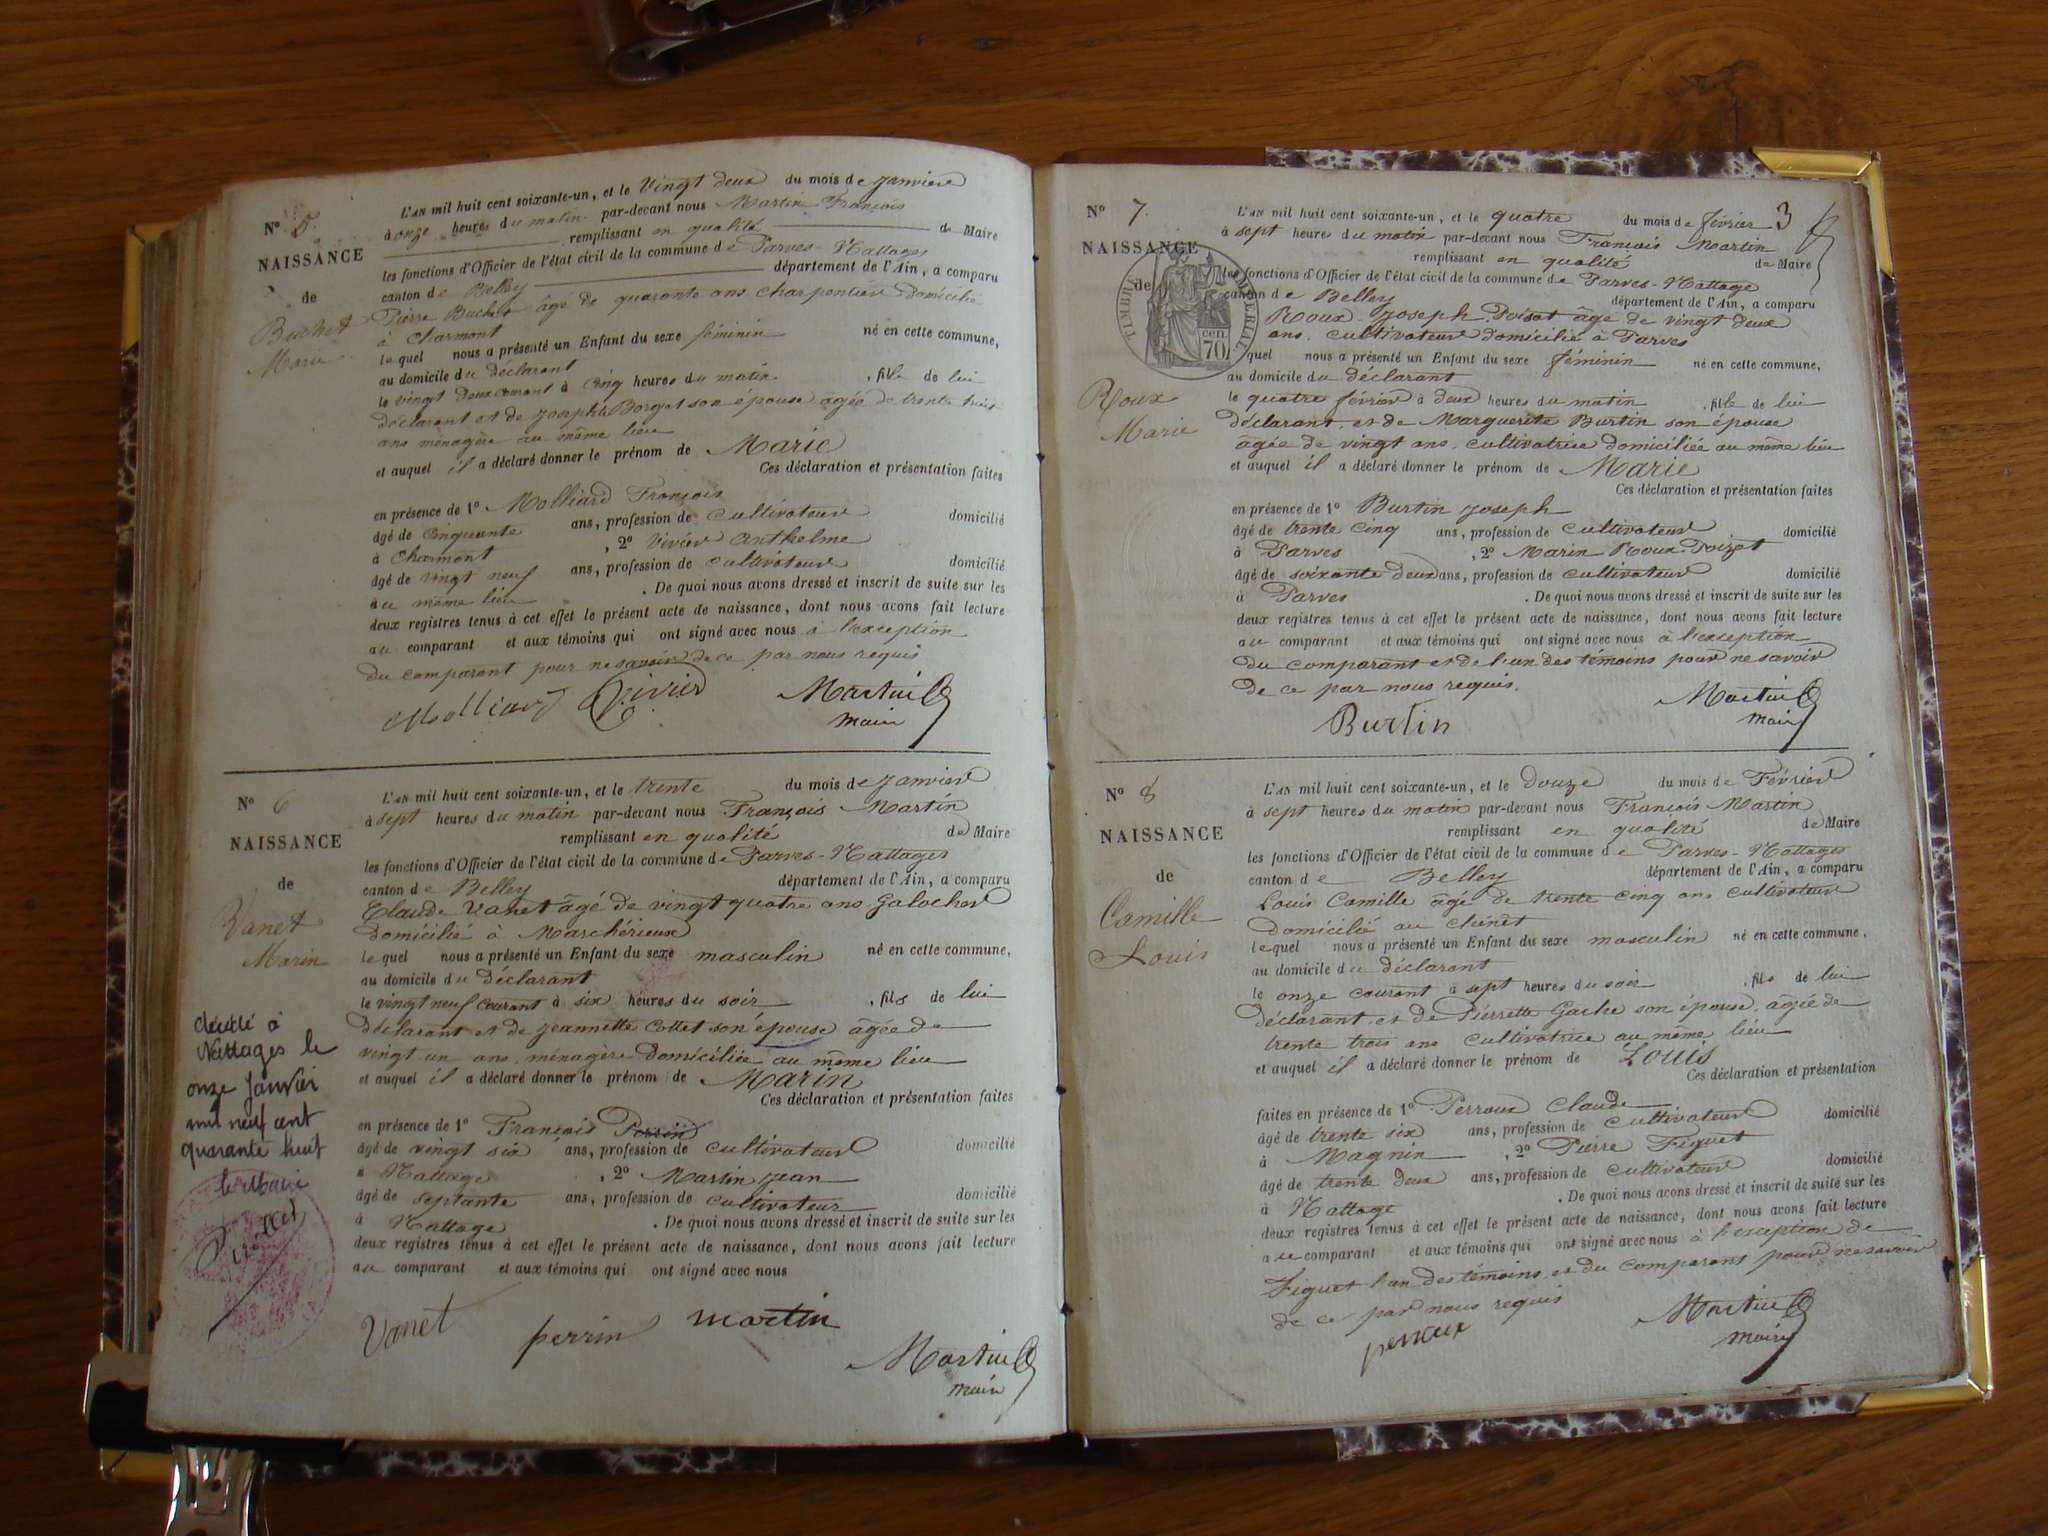 N° 5.
NAISSANCE
de
Buchet
Marie
L'AN mil huit cent soixante-un, et le Vingt deux du mois de Janvier
à onze heures du matin par-devant nous Martin François
remplissant en qualité de Maire
les fonctions d'Officier de l'état civil de la commune de Parves-Nattages
canton de Belley département de l'Ain, a comparu
Pierre Buchet âgé de quarante ans charpentier domicilié
à Charmont
lequel nous a présenté un Enfant du sexe féminin né en cette commune,
au domicile du déclarant
le vingt deux courant à cinq heures du matin, fille de lui
déclarant et de Josephte Borget son épouse agée de trente trois
ans ménagère au même lieu
et auquel il a déclaré donner le prénom de Marie
Ces déclaration et présentation faites
en présence de 1° Molliard François
âgé de cinquante ans, profession de cultivateur domicilié
à Charmont, 2° Vivier Anthelme
âgé de vingt neuf ans, profession de cultivateur domicilié
au même lieu. De quoi nous avons dressé et inscrit de suite sur les
deux registres tenus à cet effet le présent acte de naissance, dont nous avons fait lecture
au comparant et aux témoins qui ont signé avec nous à l'exception
du comparant pour ne savoir de ce par nous requis
Molliard Vivier Martin
maire
N° 6
NAISSANCE
de
Vanet
Marin
décédé à
Nattages le
onze Janvier
mil neuf cent
quarante huit
le Maire
L'AN mil huit cent soixante-un, et le trente du mois de Janvier
à sept heures du matin par-devant nous François Martin
remplissant en qualité de Maire
les fonctions d'Officier de l'état civil de la commune de Parves-Nattages
canton de Belley département de l'Ain, a comparu
Claude Vanet âgé de vingt quatre ans Galocher
domicilié à Marchérieux
lequel nous a présenté un Enfant du sexe masculin né en cette commune,
au domicile du déclarant
le vingt neuf courant à six heures du soir, fils de lui
déclarant et de Jeannette Collet son épouse âgée de
vingt un ans ménagère domiciliée au même lieu
et auquel il a déclaré donner le prénom de Marin
Ces déclaration et présentation faites
en présence de 1° François Perrin
âgé de vingt six ans, profession de cultivateur domicilié
à Nattage, 2° Martin Jean
âgé de septante ans, profession de cultivateur domicilié
à Nattage. De quoi nous avons dressé et inscrit de suite sur les
deux registres tenus à cet effet le présent acte de naissance, dont nous avons fait lecture
au comparant et aux témoins qui ont signé avec nous
Vanet perrin martin
Martin
maire
3
N° 7.
NAISSANCE
de
TIMBRE IMPERIAL
70 cen
Roux
Marie
L'AN mil huit cent soixante-un, et le quatre du mois de février
à sept heures du matin par-devant nous François Martin
remplissant en qualité de Maire
les fonctions d'Officier de l'état civil de la commune de Parves-Nattage
canton de Belley département de l'Ain, a comparu
Roux Joseph Poisat âgé de vingt deux
ans, cultivateur domicilié à Parves
quel nous a présenté un Enfant du sexe féminin né en cette commune,
au domicile du déclarant
le quatre février à deux heures du matin, fille de lui
déclarant et de Marguerite Burtin son épouse
âgée de vingt ans, cultivatrice domiciliée au même lieu
et auquel il a déclaré donner le prénom de Marie
Ces déclaration et présentation faites
en présence de 1° Burtin Joseph
âgé de trente cinq ans, profession de cultivateur domicilié
à Parves, 2° Marin Roux Poizat
âgé de soixante deux ans, profession de cultivateur domicilié
à Parves. De quoi nous avons dressé et inscrit de suite sur les
deux registres tenus à cet effet le présent acte de naissance, dont nous avons fait lecture
au comparant et aux témoins qui ont signé avec nous à l'exception
du comparant et de l'un des témoins pour ne savoir
de ce par nous requis.
Burtin Martin
maire
N° 8
NAISSANCE
de
Camille
Louis
L'AN mil huit cent soixante-un, et le Douze du mois de Février
à sept heures du matin par-devant nous François Martin
remplissant en qualité de Maire
les fonctions d'Officier de l'état civil de la commune de Parves-Nattages
canton de Belley département de l'Ain, a comparu
Louis Camille âgé de trente cinq ans cultivateur
domicilié au chênet
lequel nous a présenté un Enfant du sexe masculin né en cette commune,
au domicile du déclarant
le onze courant à sept heures du soir, fils de lui
déclarant et de Pierrette Gache son épouse, âgée de
trente trois ans cultivatrice au même lieu
et auquel il a déclaré donner le prénom de Louis
Ces déclaration et présentation
faites en présence de 1° Perroux Claude
âgé de trente six ans, profession de cultivateur domicilié
à Magnin, 2° Pierre Figuet
âgé de trente deux ans, profession de cultivateur domicilié
à Nattage. De quoi nous avons dressé et inscrit de suite sur les
deux registres tenus à cet effet le présent acte de naissance, dont nous avons fait lecture
au comparant et aux témoins qui ont signé avec nous à l'exception de
Figuet l'un des témoins et du comparant pour ne savoir
de ce par nous requis
perroux Martin
maire